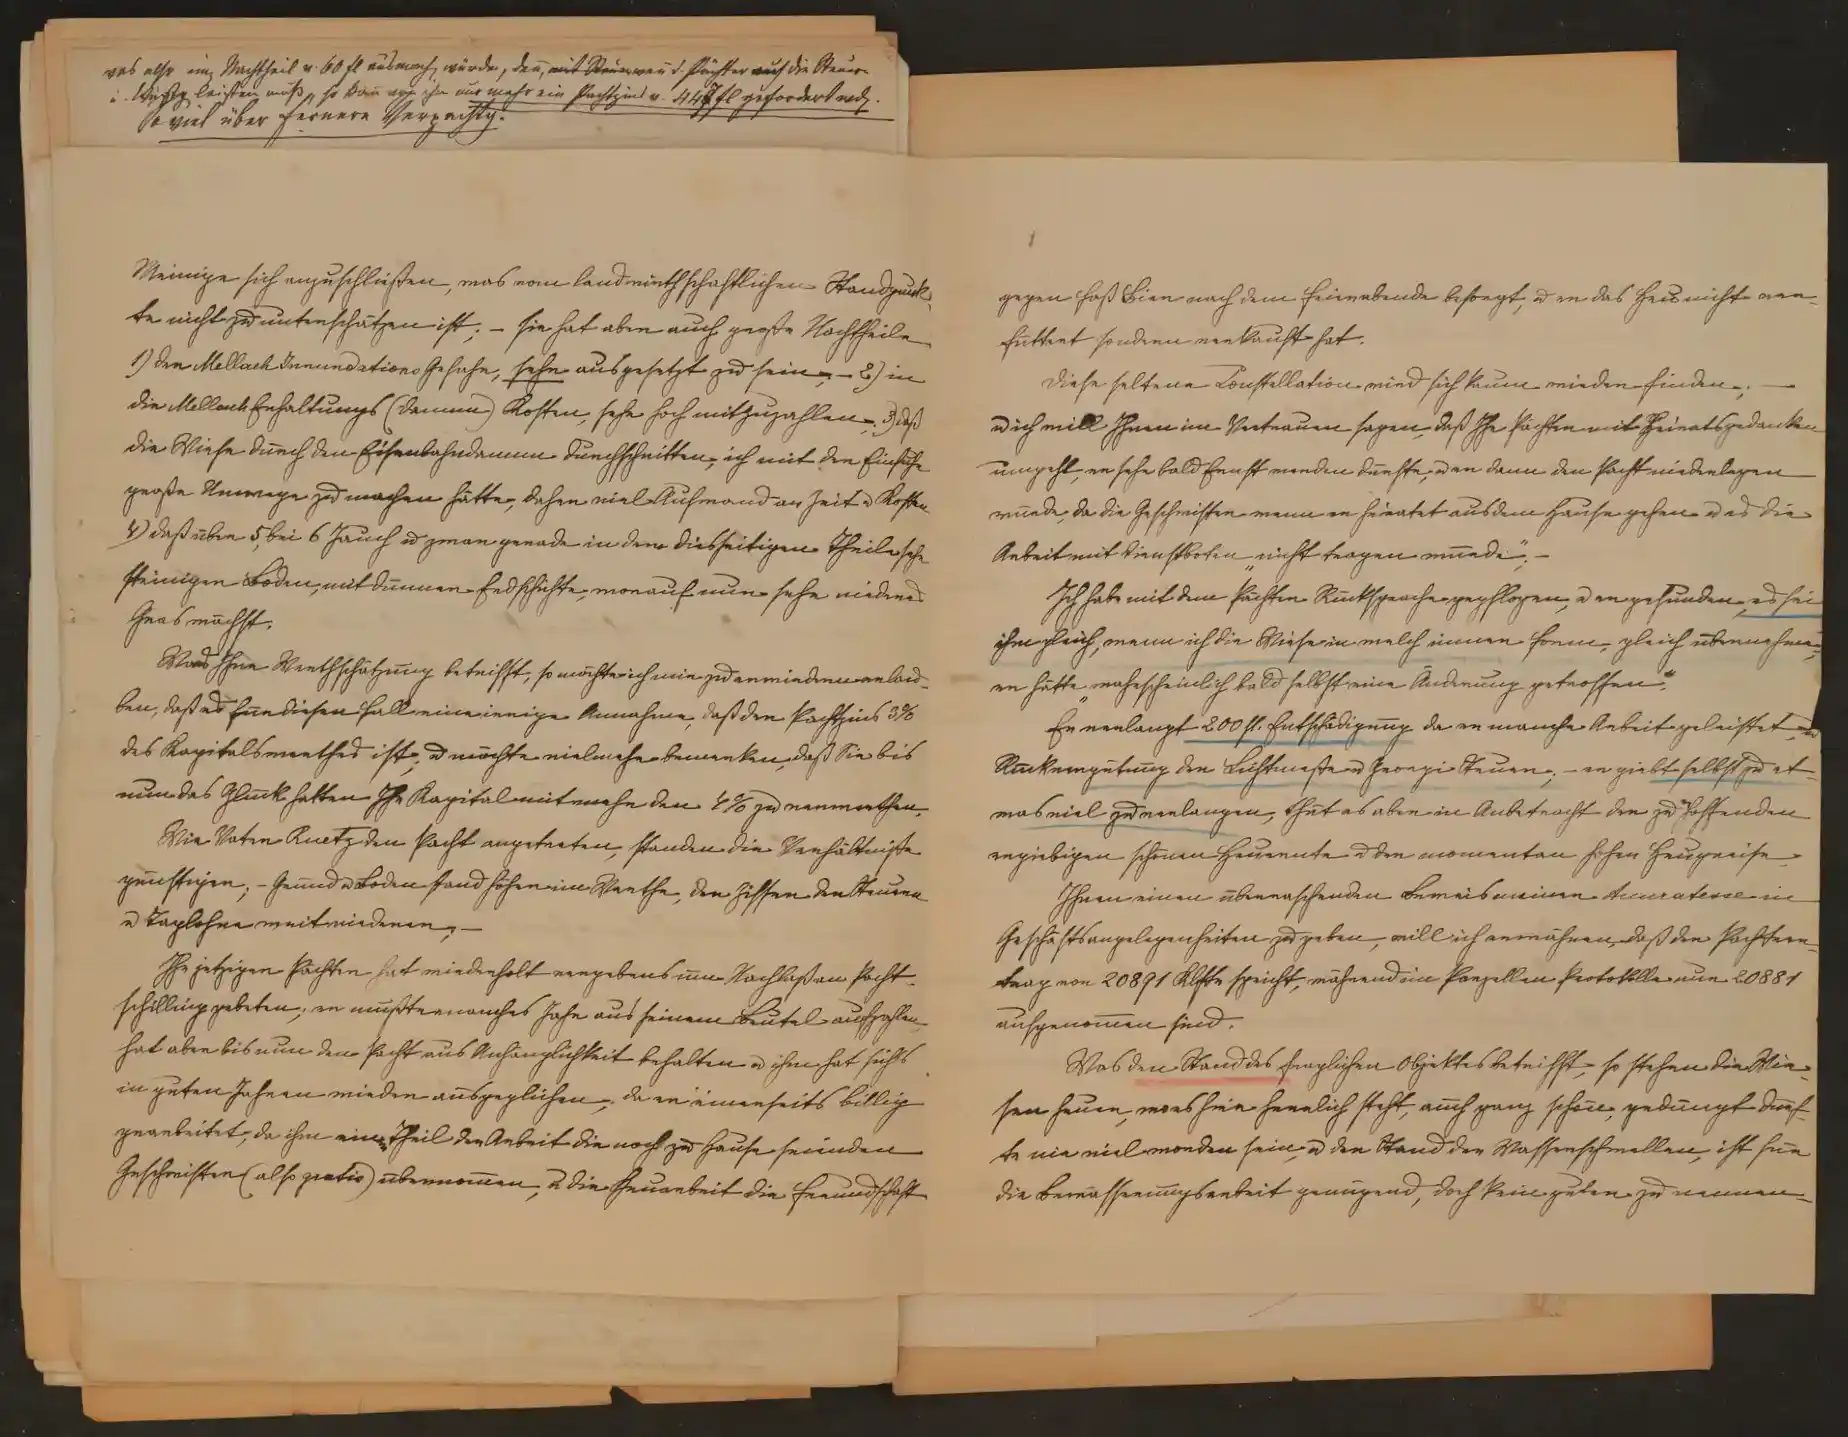 was also im Nachtheil v. 60 fl ausmach. würde, den, mit d. Pächter auf die Steuer
leisten muß, so kan von ihm nur mehr ein Pachtzins v. 447 fl gefordert wdn.
So viel über fernere Verpachtg.
Meinige sich anzuschließen, was vom landwirthschaftlichen Standpunk-
te nicht zu unterschätzen ist; – sie hat aber auch große Nachtheile
1) der Mellach Innundations Gefahr, sehr ausgesetzt zu sein, – 2) in
die Mellach Erhaltungs (Damm) Kosten, sehr hoch mitzuzahlen, 3) daß
die Wiese durch den Eisenbahndamm durchschnitten, ich mit der Einfuhr
große Umwege zu machen hätte, daher viel Aufwand an Zeit u Kosten
4) daß über 5, bei 6 Jauch u zwar gerade in dem diesseitigen Theile sehr
steinigen Boden, mit dünner Erdschichte, worauf nur sehr niederes
Gras wächst.
Was Ihre Werthschätzung betrifft, so möchte ich mir zu erwiedern erlau-
ben, daß es für diesen Fall eine irrige Annahme, daß der Pachtzins 3%
des Kapitalswerthes ist, u möchte vielmehr bemerken, daß Sie bis
nun das Glück hatten Ihr Kapital mit mehr den 4% zu verwerthen.
Wie Vater Kurtz den Pacht angetreten, standen die Verhältniße
günstiger; – Grund u Boden stand höher im Werthe, der Ziffer der Steuern
u Taglohne weit niederer, –
Ihr jetziger Pächter hat wiederholt vergebens um Nachlaß am Pacht-
schilling gebeten; er mußte manches Jahr aus seinem Beutel aufzahlen
hat aber bis nun den Pacht aus Anhänglichkeit behalten u ihm hat sichs
in guten Jahren wieder ausgeglichen, da er einerseits billig
gearbeitet, da ihm einen Theil der Arbeit die noch zu Hause seienden
Geschwister (also gratis) übernommen, u die Heuarbeit die Freundschaft
gegen Faß Bier nach dem Feierabende besorgt, u er das Heu nicht ver-
füttert sondern verkauft hat.
Diese seltene Constellation wird sich kaum wieder finden; –
u ich will Ihnen im Vertrauen sagen, daß Ihr Pächter mit Heiratsgedanken
umgeht, er sehr bald Ernst werden dürfte, u er dann den Pacht niederlegen
würde, da die Geschwister wenn er heiratet aus dem Hause gehen u es die
Arbeit mit Dienstboten „nicht tragen würde“, –
Ich habe mit dem Pächter Rücksprache gepflogen, u er gefunden, es sei
ihm gleich, wenn ich die Wiese in welch immer Form, gleich übernehme,
er hätte „wahrscheinlich bald selbst eine Änderung getroffen“.
Er verlangt 200 fl. Entschädigung da er manche Arbeit geleistet und
Rückvergütung der Lichtmeße u Georgi Steuer, – er giebt selbst zu et-
was viel zu verlangen, thut es aber in Anbetracht der zu hoffenden
ergiebigen schönen Heuernte u den momentan hohen Heupreise.
Ihnen einen überraschenden Beweis meiner Accuratesse in
Geschäftsangelegenheiten zu geben, will ich erwähnen, daß der Pachtver-
trag von 20891 Klftr spricht, während im Parzellen Protokolle nur 20881
aufgenommen sind.
Was den Stand des fraglichen Objektes betrifft, so stehen die Wie-
sen heuer, was hier herrlich steht, auch ganz schön, gedüngt dürf-
te nie viel worden sein, u der Stand der Wasserschwellen, ist für
die Bewässerungsarbeit genügend, doch kein guter zu nennen –